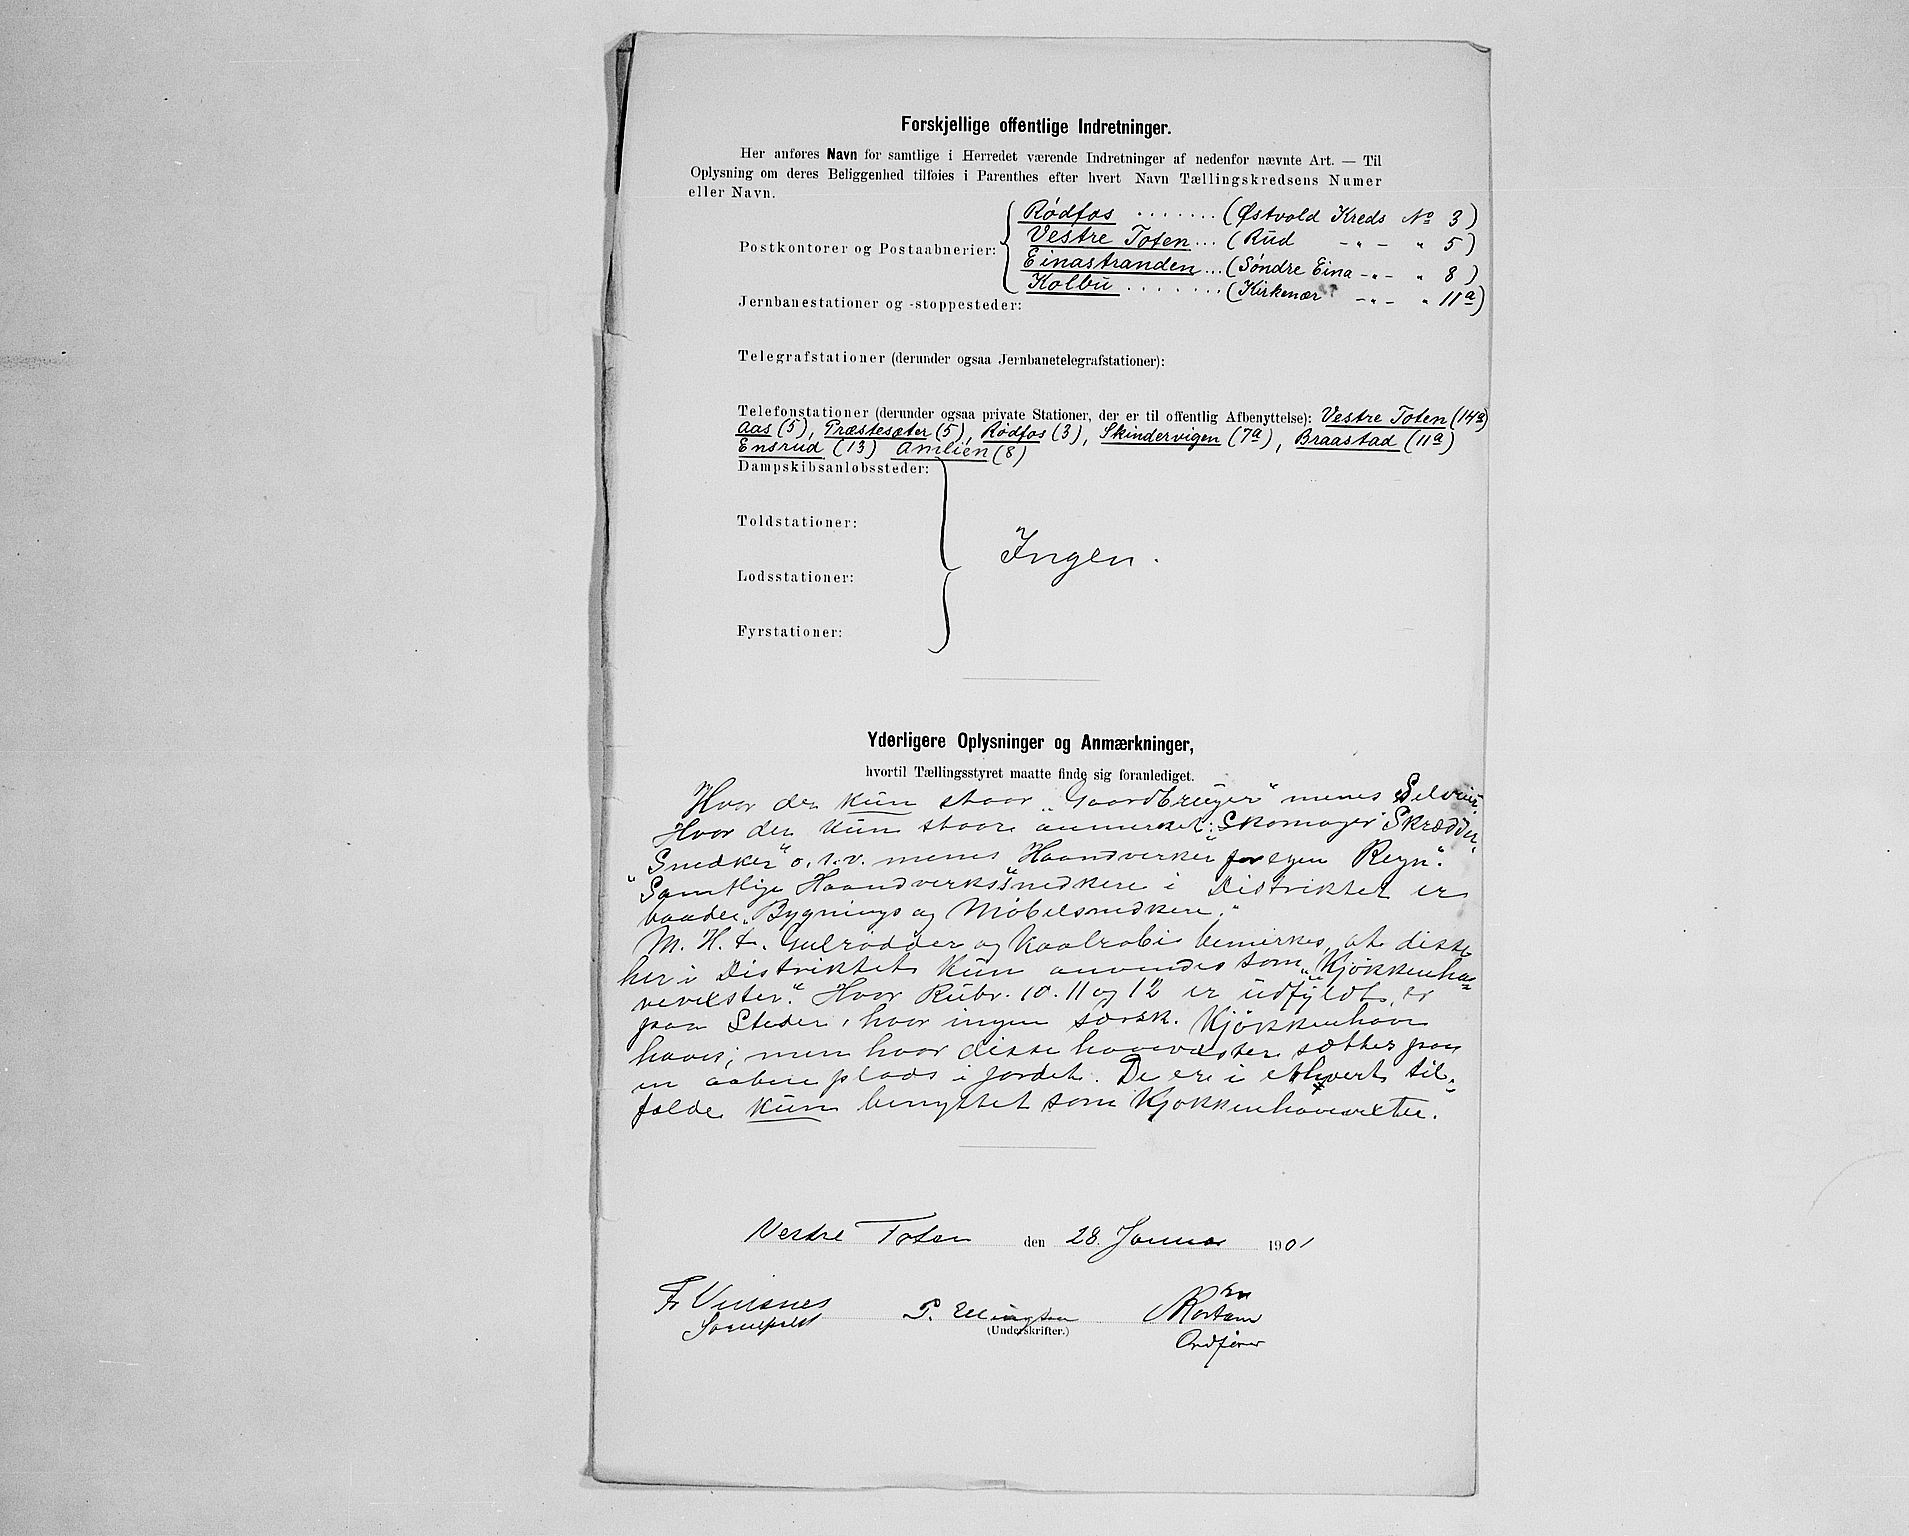 Forskjellige offentlige Indretninger.
Her anføres Navn for samtlige i Herredet værende Indretninger af nedenfor nævnte Art. — Til
Oplysning om deres Beliggenhed tilføies i Parenthes efter hvert Navn Tællingskredsens Numer
eller Navn.
Rødfos ....... (Østvold Kreds No 3)
Vestre Toten... (Rud -"- " 5)
Postkontorer og Postaabnerier:
Einastranden... (Søndre Eina -"- " 8)
Kolbu ........ (Kirkenær -"- " 11a)
Jernbanestationer og -stoppesteder:
Telegrafstationer (derunder ogsaa Jernbanetelegrafstationer):
Telefonstationer (derunder ogsaa private Stationer, der er til offentlig Afbenyttelse): Vestre Toten (14a)
Aas (5), Præstesæter (5), Rødfos (3), Skindervigen (7a), Braastad (11a)
Ensrud (13) Amlien (8)
Dampskibsanløbssteder:
Toldstationer:
Ingen.
Lodsstationer:
Fyrstationer:
Yderligere Oplysninger og Anmærkninger,
hvortil Tællingsstyret maatte finde sig foranlediget.
Hvor der kun staar „Gaardbruger" menes Selveier.
Hvor der kun staar anmerket: „Skomager" Skrædder,
„Snedker" o.s.v. menes „Haandverker for egen Regn".
Samtlige Haandverkssnedkere i Distriktet er
baade „Bygnings og Møbelsnedkere."
M. H. t. Gulrødder og Kaalrabi bemerkes, at disse
her i Distriktet kun anvendes som „Kjøkkenha-
vevexster". Hvor Rubr. 10. 11 og 12 er udfyldt, er
paa Steder, hvor ingen særsk. Kjøkkenhave
haves; men hvor disse havevexster sættes paa
en aaben plads i jordet. De er i ethvert til-
fælde kun benyttet som Kjøkkenhavevexter.
Vestre Toten den 28. Januar 1901
P. Ellingsen
(Underskrifter.)
Ordfører